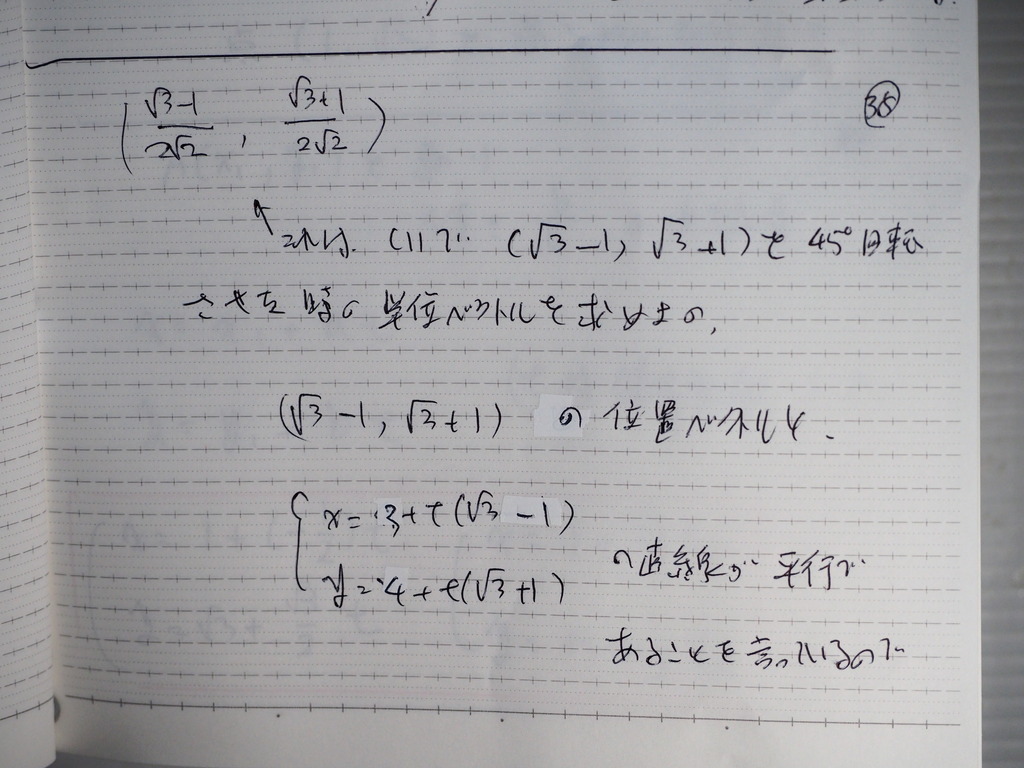 (√3-1/2√2, √3+1/2√2) ㊳
これは、(1)で (√3-1, √3+1)を45°回転
させた時の単位ベクトルを求めよの、
(√3-1, √3+1) の位置ベクトルと、
x=3+t(√3-1)
y=4+t(√3+1)
の直線が平行で
あることを言っているので